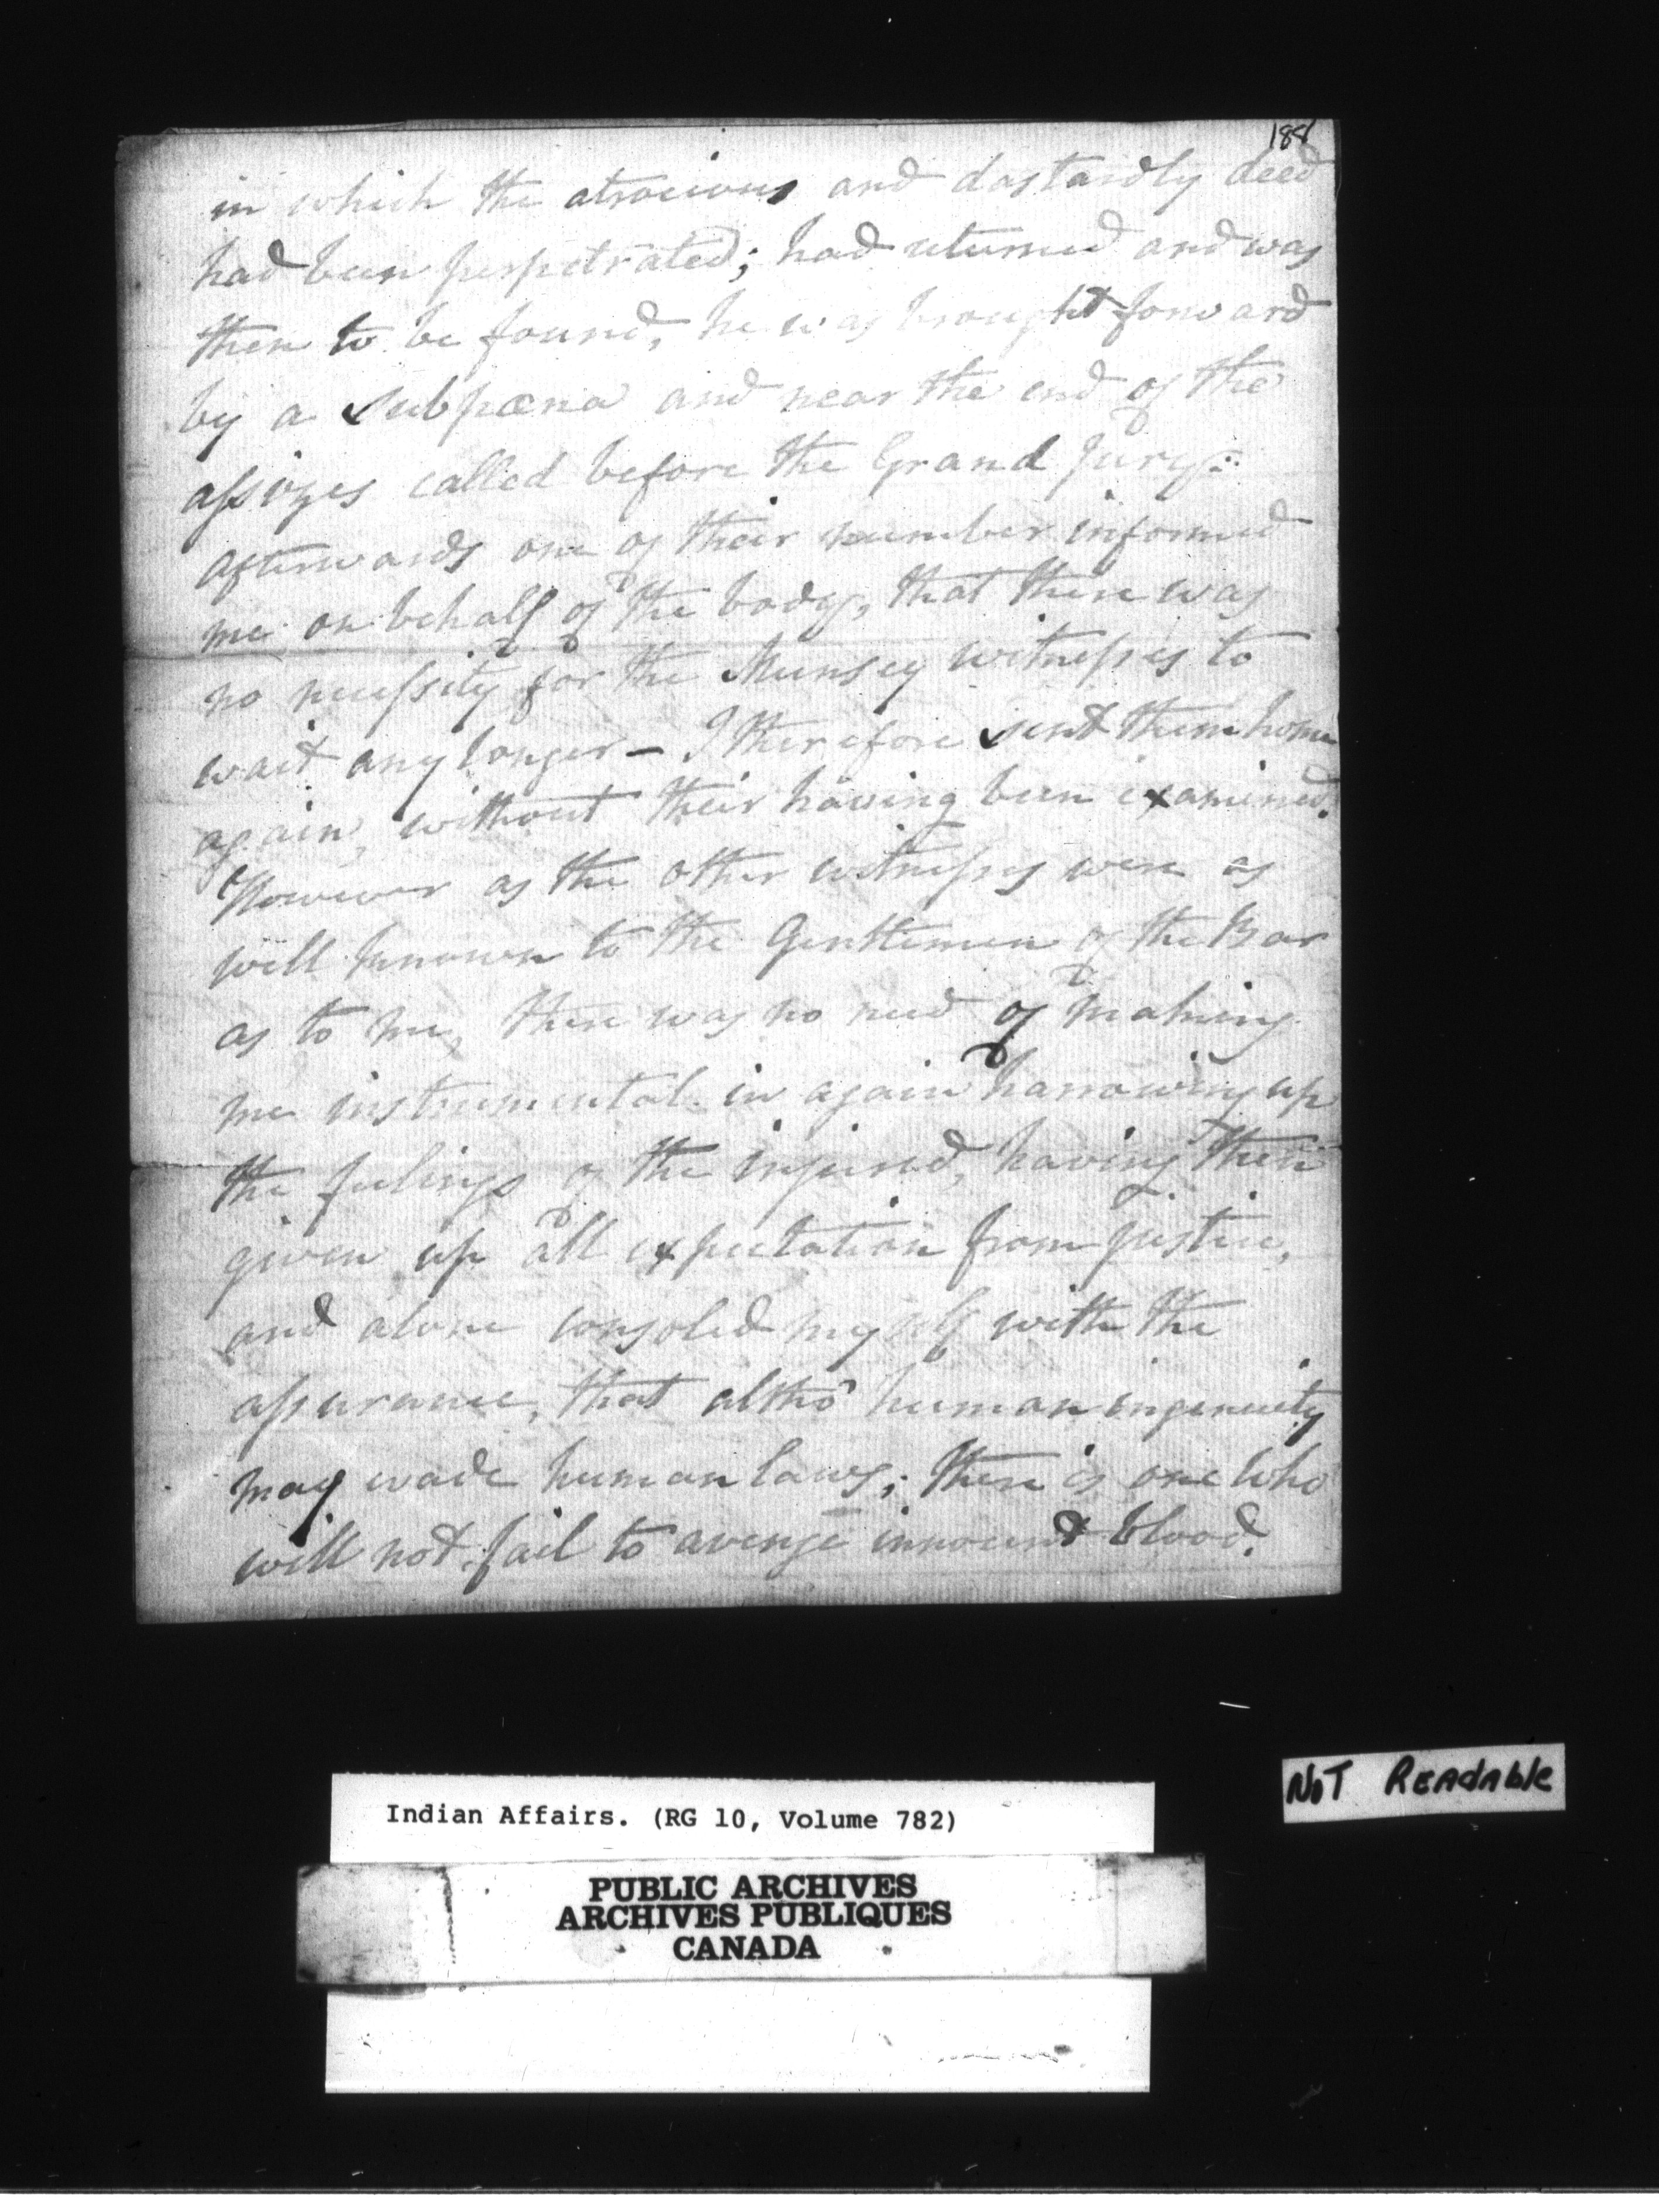 188
in which the atrocious and dastardly deed
had been perpetrated; had returned and was
then to be found, he was brought forward
by a subpœna and near the end of the
assizes called before the Grand Jury:
afterwards one of their number informed
me on behalf of the body, that there was
no necessity for the Munsey witnesses to
wait any longer – I therefore sent them home
again, without their having been examined.
However as the other witnesses were as
well known to the Gentlemen of the Bar
as to me, there was no need of making
me instrumental in again harrowing up
the feelings of the injured, having then
given up all expectation from justice,
and alone consoled myself with the
assurance, that altho' human ingenuity
may evade human laws; there is one who
will not fail to avenge innocent blood.
NOT READABLE
Indian Affairs. (RG 10, Volume 782)
PUBLIC ARCHIVES
ARCHIVES PUBLIQUES
CANADA